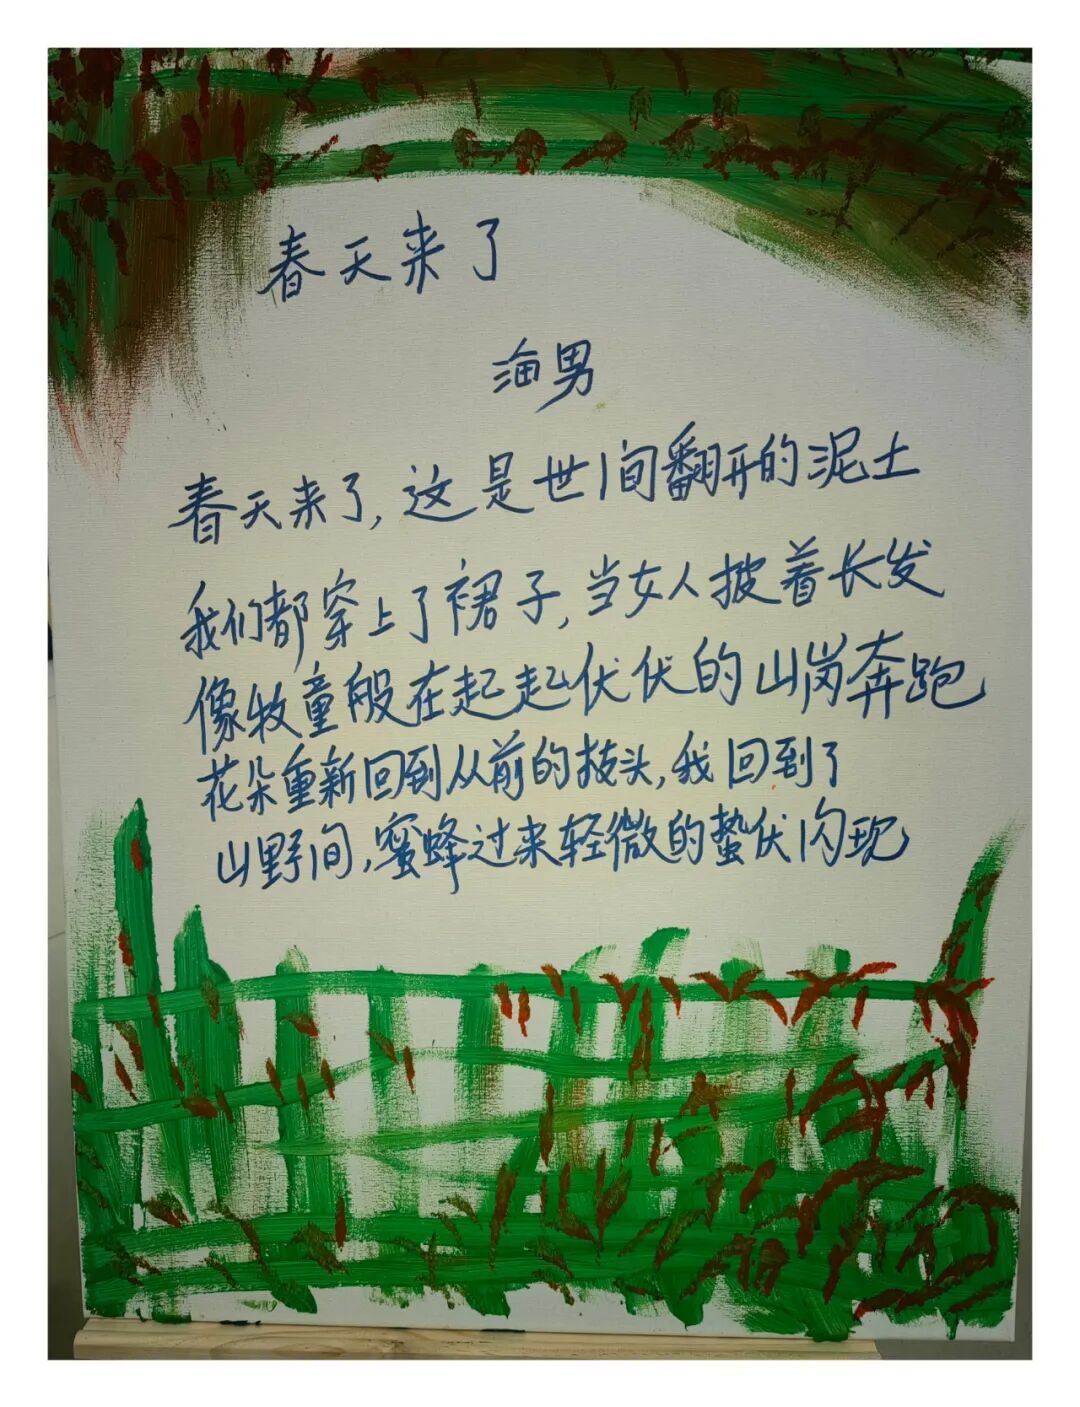 春天来了
海男
春天来了,这是世间翻开的泥土
我们都穿上了裙子,当女人披着长发
像牧童般在起起伏伏的山岗奔跑
花朵重新回到从前的枝头,我回到了
山野间,蜜蜂过来轻微的蛰伏闪现